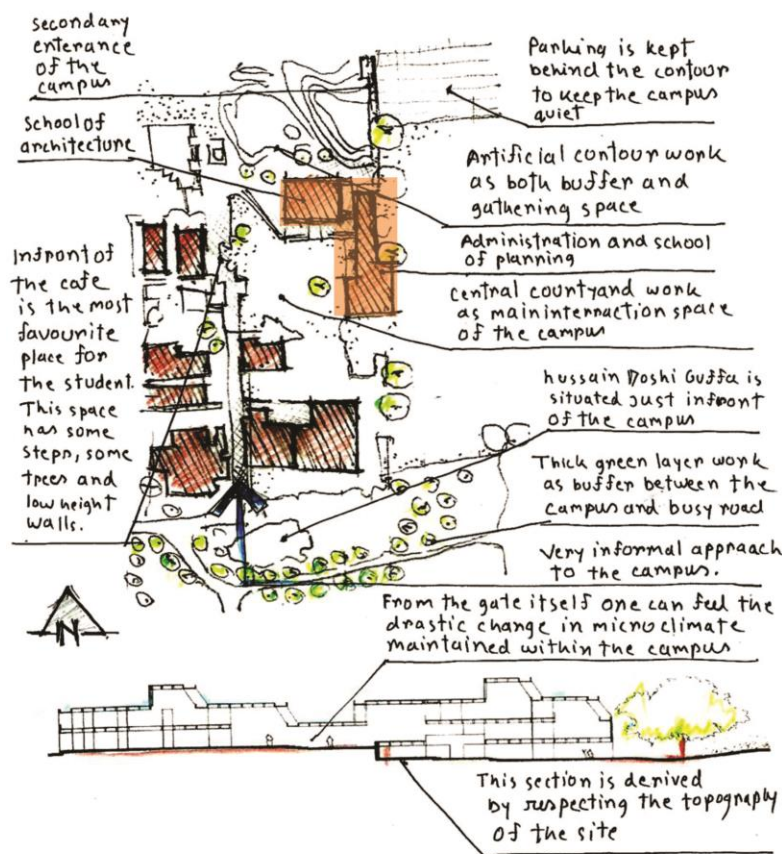 secondary
enterance
of the
campus
School of
architecture
Infront of
the cafe
is the most
favourite
place for
the student.
This space
has some
steps, some
trees and
low height
walls.
Parking is kept
behind the contour
to keep the campus
quiet
Artificial contour work
as both buffer and
gathering space
Administration and school
of planning
central courtyard work
as main internaction space
of the campus
hussain Doshi Guffa is
situated Just infront
of the campus
Thick green layer work
as buffer between the
campus and busy road
Very informal appraach
to the campus.
From the gate itself one can feel the
drastic change in microclimate
maintained within the campus
N
This section is derived
by respecting the topography
of the site